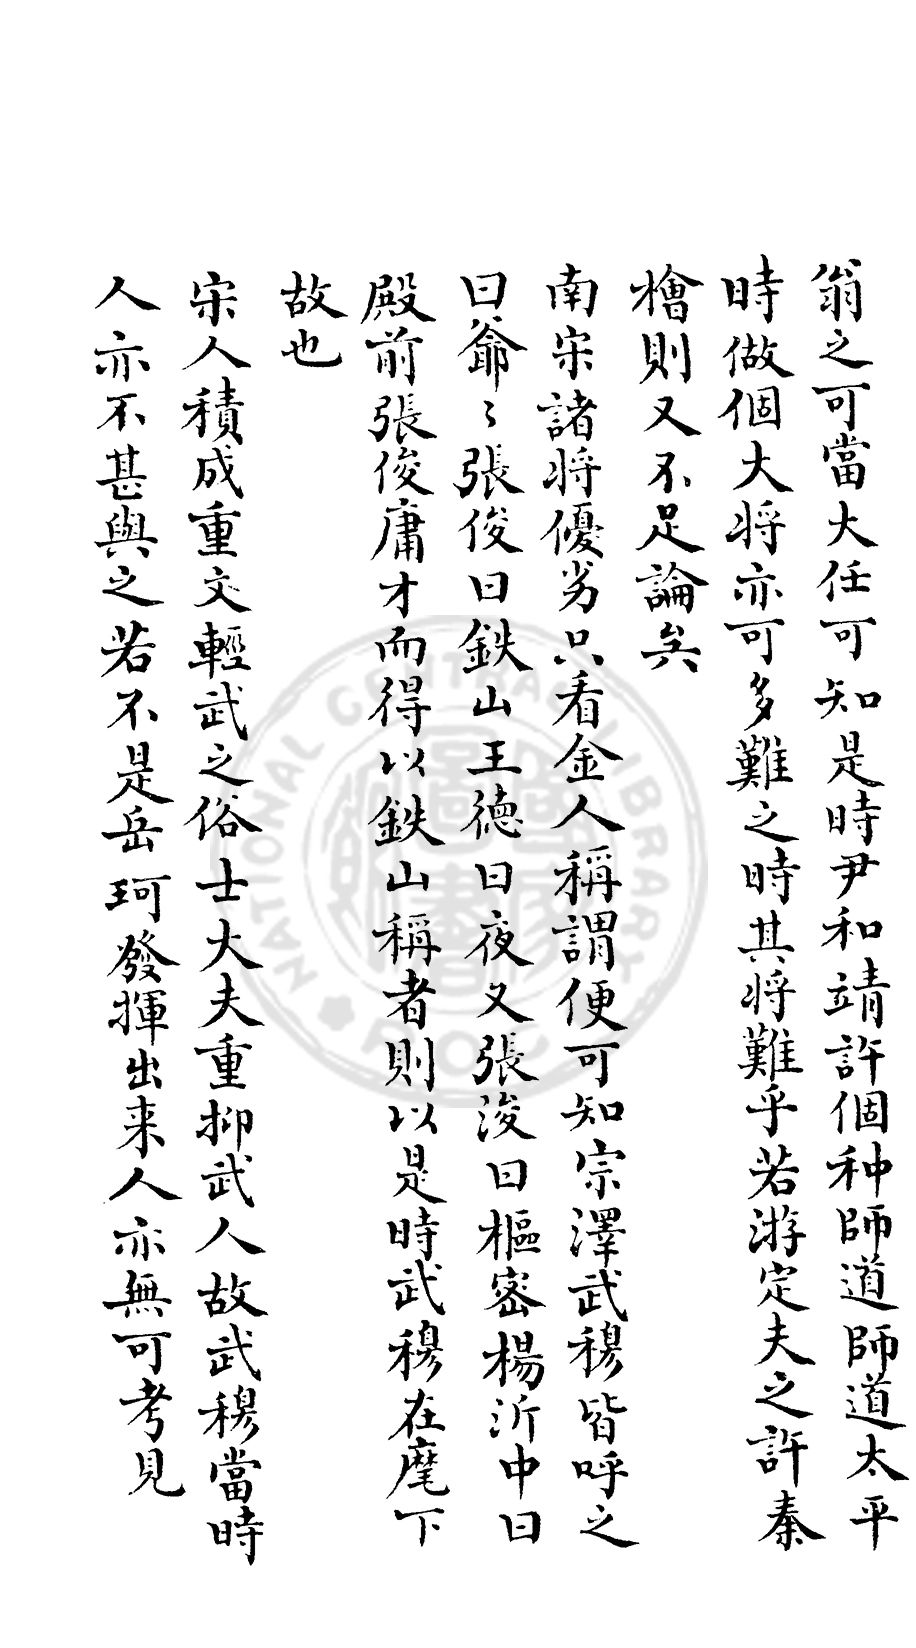 翁之可當大任可知是時尹和靖許個种師道師道太平
時做個大将亦可多難之時其将難乎若游定夫之許秦
檜則又不足論矣
南宋諸将優劣只看金人稱謂便可知宗澤武穆皆呼之
曰爺〻張俊曰鉄山王德曰夜叉張浚曰樞密楊沂中曰
殿前張俊庸才而得以鉄山稱者則以是時武穆在麾下
故也
宋人積成重文輕武之俗士大夫重抑武人故武穆當時
人亦不甚與之若不是岳珂發揮出来人亦無可考見
NATIONAL CENTRAL LIBRARY
ROC